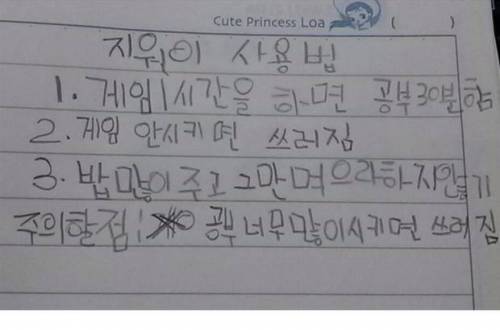 Cute Princess Loa ( )
지워이 사용법
1. 게임 1시간을 하면 공부 30분함
2. 게임 안시키면 쓰러짐
3. 밥 많이 주고 그만 먹으라하지안기
주의할점: 공부 너무 많이시키면 쓰러짐